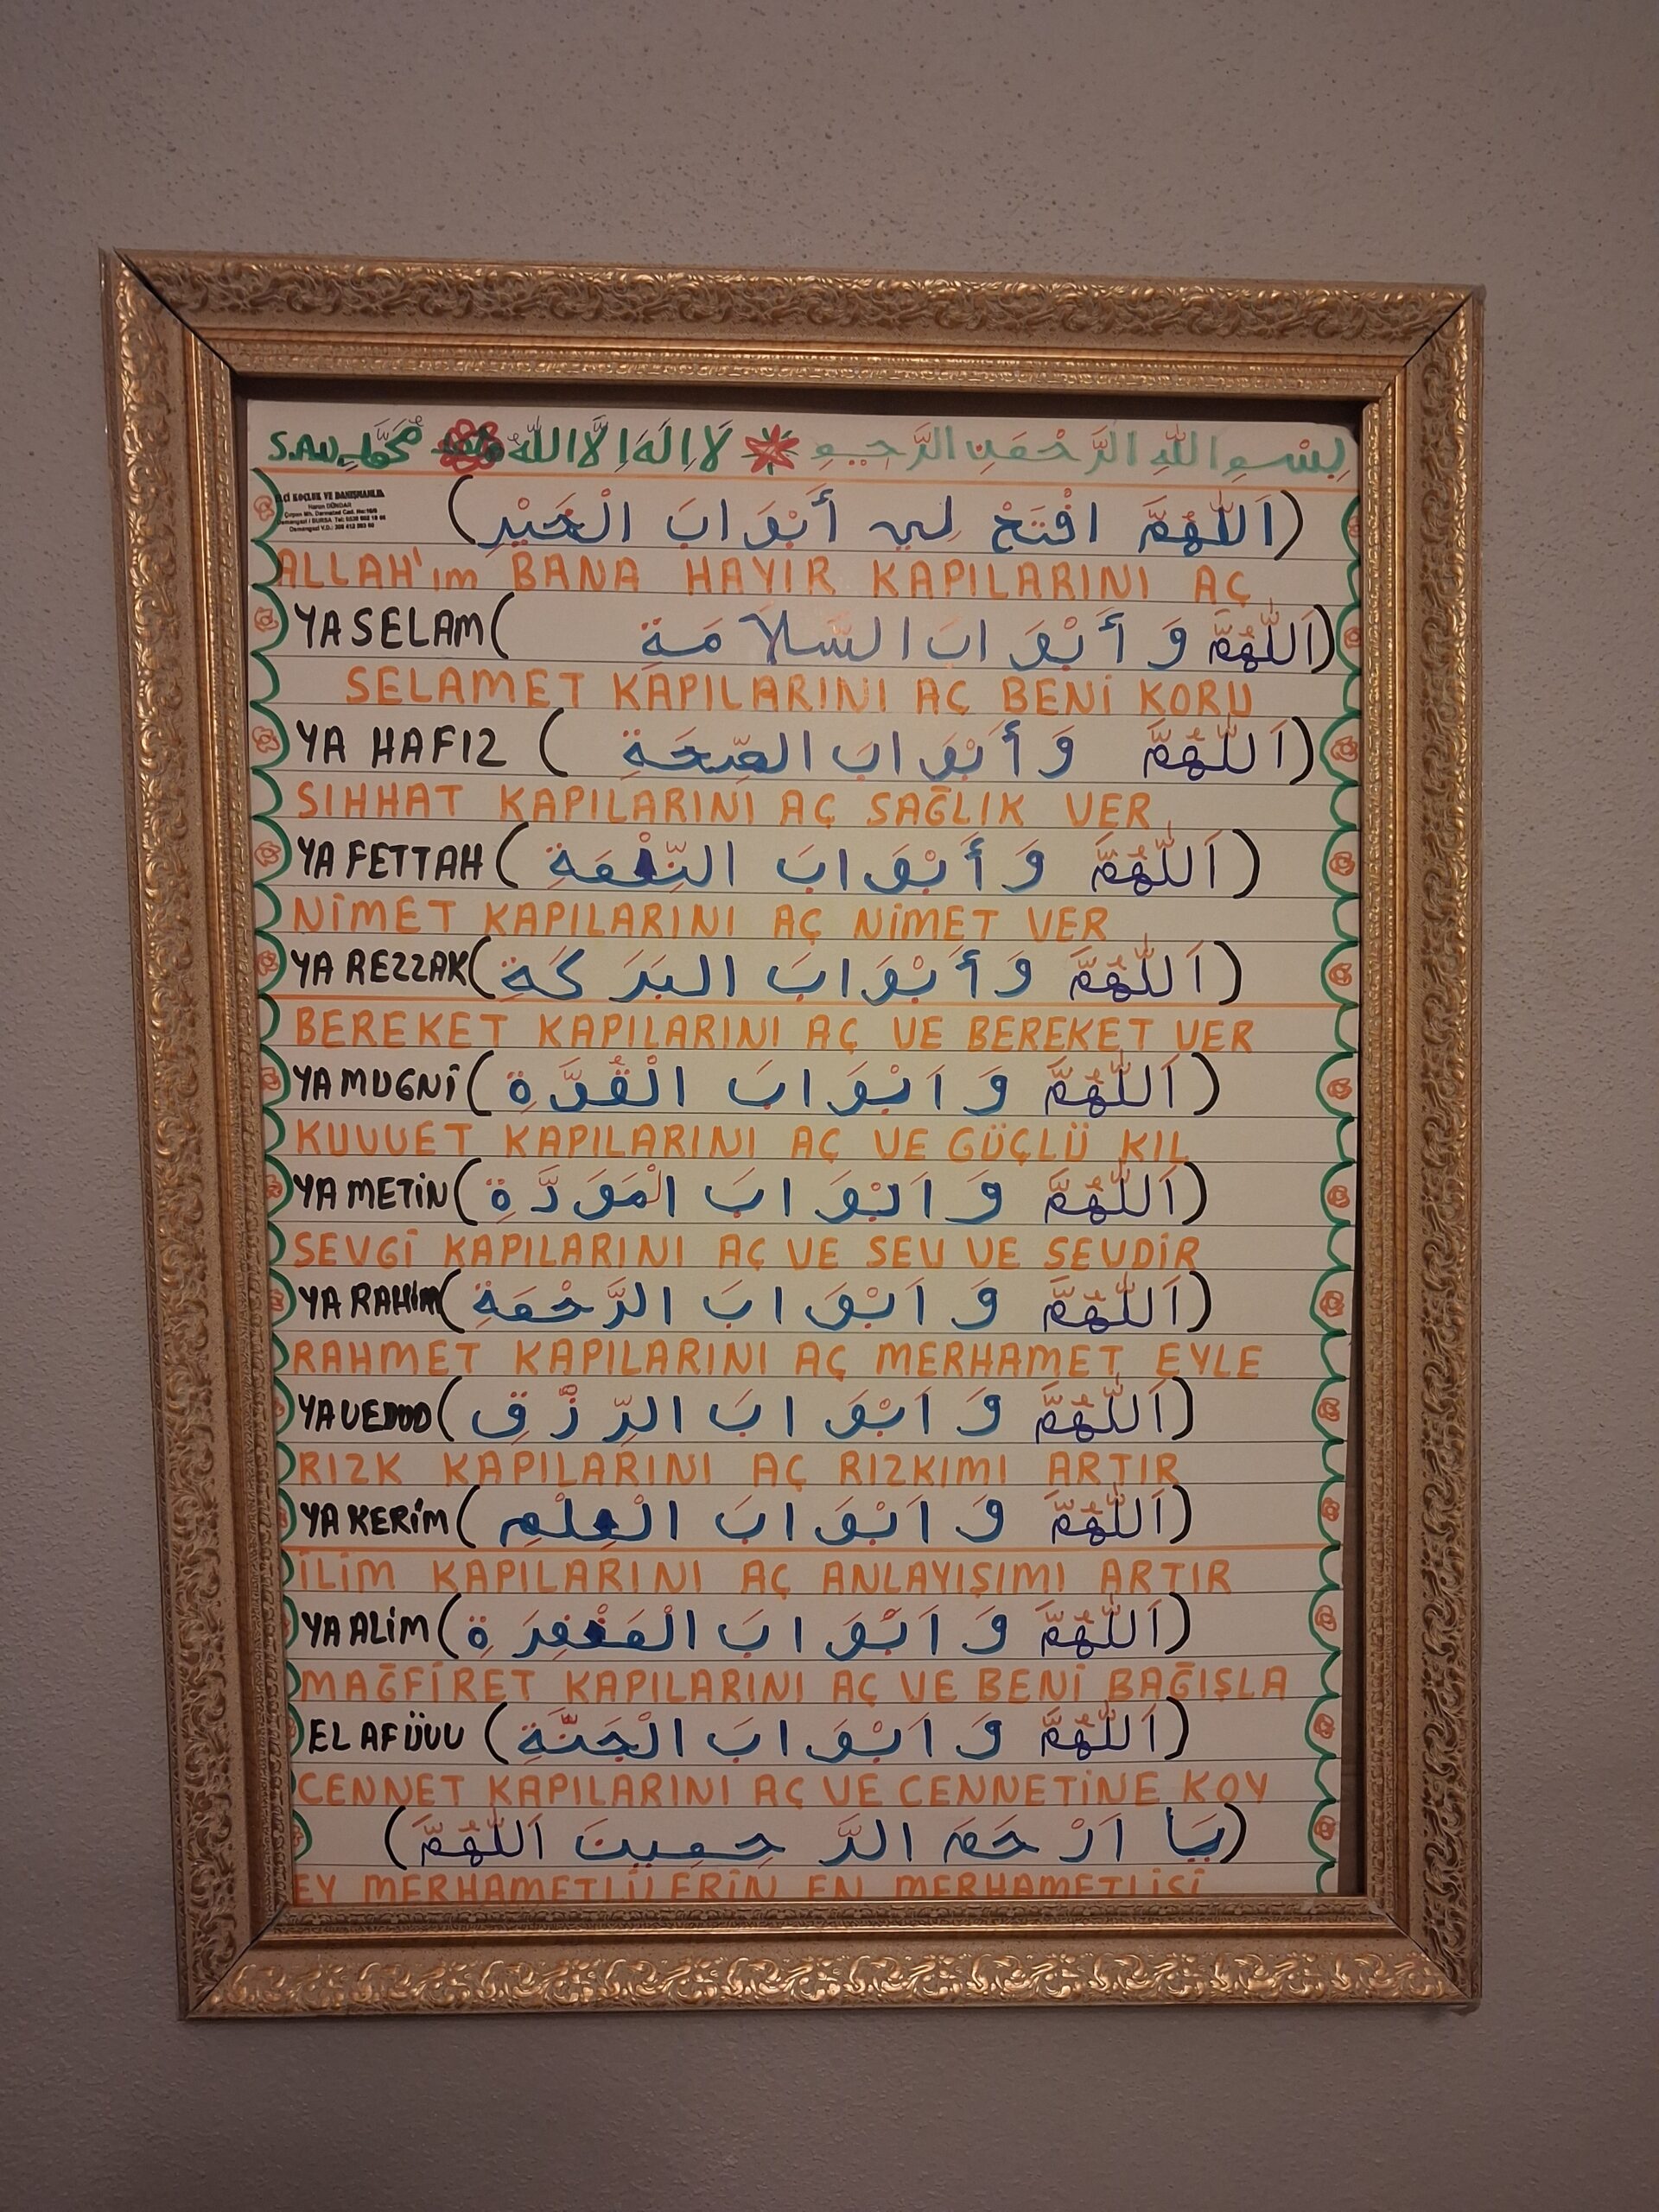 بِسْمِ اللهِ الرَّحْمَنِ الرَّحِيمِ لَا اِلَهَ اِلَّا اللهُ مُحَمَّد S.A.V.
KOÇLUK VE DANIŞMANLIK
Harun DÜNDAR
(اَللّٰهُمَّ افْتَحْ لِي أَبْوَابَ الْخَيْرِ)
ALLAH'ım BANA HAYIR KAPILARINI AÇ
YA SELAM (اَللّٰهُمَّ وَ أَبْوَابَ السَّلَامَةِ)
SELAMET KAPILARINI AÇ BENİ KORU
YA HAFIZ (اَللّٰهُمَّ وَ أَبْوَابَ الصِّحَةِ)
SIHHAT KAPILARINI AÇ SAĞLIK VER
YA FETTAH (اَللّٰهُمَّ وَ أَبْوَابَ النِّعْمَةِ)
NİMET KAPILARINI AÇ NİMET VER
YA REZZAK (اَللّٰهُمَّ وَ أَبْوَابَ البَرَكَةِ)
BEREKET KAPILARINI AÇ VE BEREKET VER
YA MUGNİ (اَللّٰهُمَّ وَ اَبْوَابَ الْقُوَّةِ)
KUVVET KAPILARINI AÇ VE GÜÇLÜ KIL
YA METİN (اَللّٰهُمَّ وَ اَبْوَابَ الْمَوَدَّةِ)
SEVGİ KAPILARINI AÇ VE SEV VE SEVDİR
YA RAHİM (اَللّٰهُمَّ وَ اَبْوَابَ الرَّحْمَةِ)
RAHMET KAPILARINI AÇ MERHAMET EYLE
YA VEDUD (اَللّٰهُمَّ وَ اَبْوَابَ الرِّزْقِ)
RIZK KAPILARINI AÇ RIZKIMI ARTIR
YA KERİM (اَللّٰهُمَّ وَ اَبْوَابَ الْعِلْمِ)
İLİM KAPILARINI AÇ ANLAYIŞIMI ARTIR
YA ALİM (اَللّٰهُمَّ وَ اَبْوَابَ الْمَغْفِرَةِ)
MAĞFİRET KAPILARINI AÇ VE BENİ BAĞIŞLA
EL AFÜVV (اَللّٰهُمَّ وَ اَبْوَابَ الْجَنَّةِ)
CENNET KAPILARINI AÇ VE CENNETİNE KOY
(يَا اَرْحَمَ الرَّحِمِينَ اَللّٰهُمَّ)
EY MERHAMETLİLERİN EN MERHAMETLİSİ